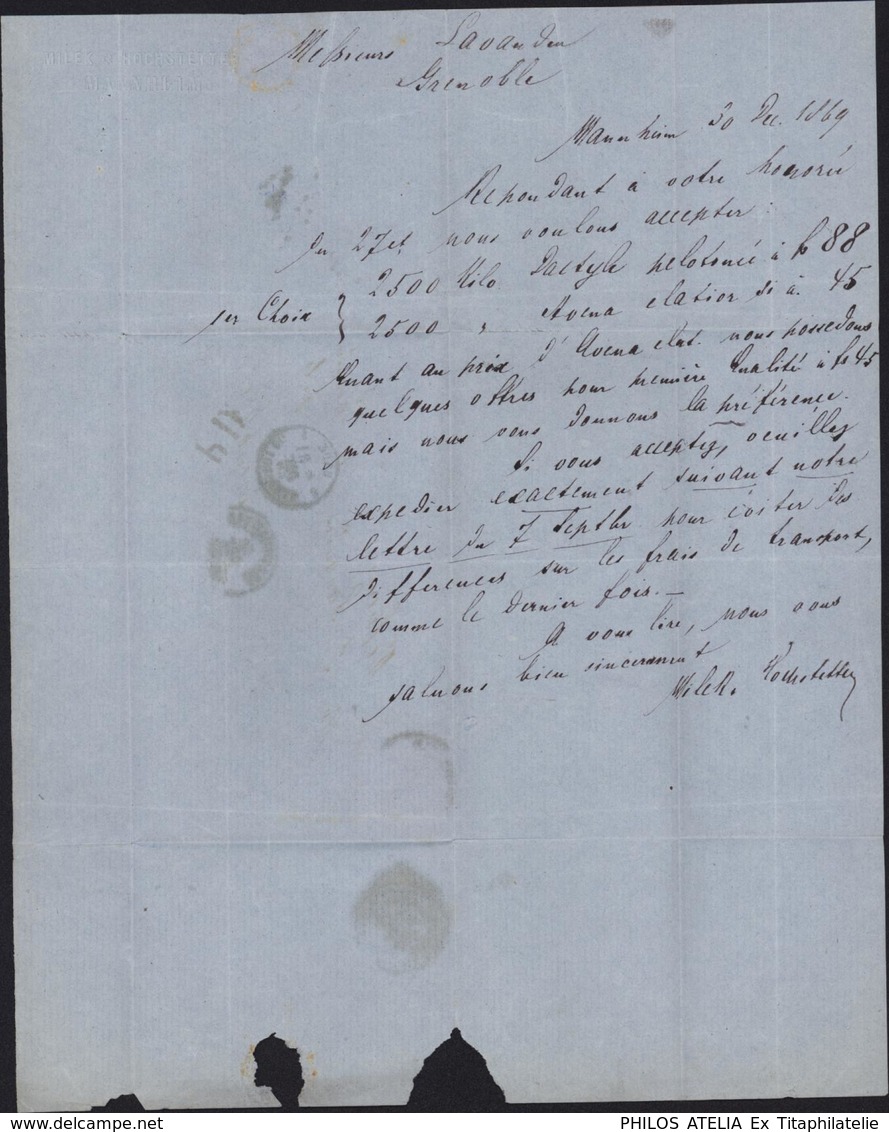 MILEK & HOCHSTETTER
MANNHEIM
Messieurs Lavanden
Grenoble
Mannheim 30 Dec. 1869
Repondant à votre honorée
du 27 ct. nous voulons accepter:
1er Choix } 2500 Kilo Dactyle pelotonée à fs 88
2500 " Avena elatior di à 45
Quant au prix d'Avena elat. nous possedons
quelques offres pour première Qualité à fs 45
mais nous vous donnons la préférence.
Si vous acceptez, veuillez
expedier exactement suivant notre
lettre du 7 Septbr pour éviter les
differences sur les frais de transport,
comme le dernier fois. —
A vous lire, nous vous
saluons bien sincerement
Milek & Hochstetter
PHILOS ATELIA Ex Titaphilatelie